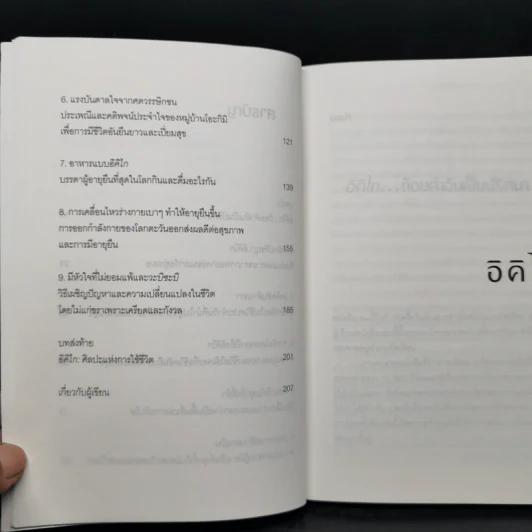 6. แรงบันดาลใจจากศตวรรษิกชน
ประเพณีและคติพจน์ประจำใจของหมู่บ้านโอะกิมิ
เพื่อการมีชีวิตอันยืนยาวและเปี่ยมสุข 121
7. อาหารแบบอิคิไก
บรรดาผู้อายุยืนที่สุดในโลกกินและดื่มอะไรกัน 139
8. การเคลื่อนไหวร่างกายเบาๆ ทำให้อายุยืนขึ้น
การออกกำลังกายของโลกตะวันออกส่งผลดีต่อสุขภาพ
และการมีอายุยืน 155
9. มีหัวใจที่ไม่ยอมแพ้และวะบิซะบิ
วิธีเผชิญปัญหาและความเปลี่ยนแปลงในชีวิต
โดยไม่แก่ชราเพราะเครียดและกังวล 185
บทส่งท้าย
อิคิไก: ศิลปะแห่งการใช้ชีวิต 201
เกี่ยวกับผู้เขียน 207
อิคิ